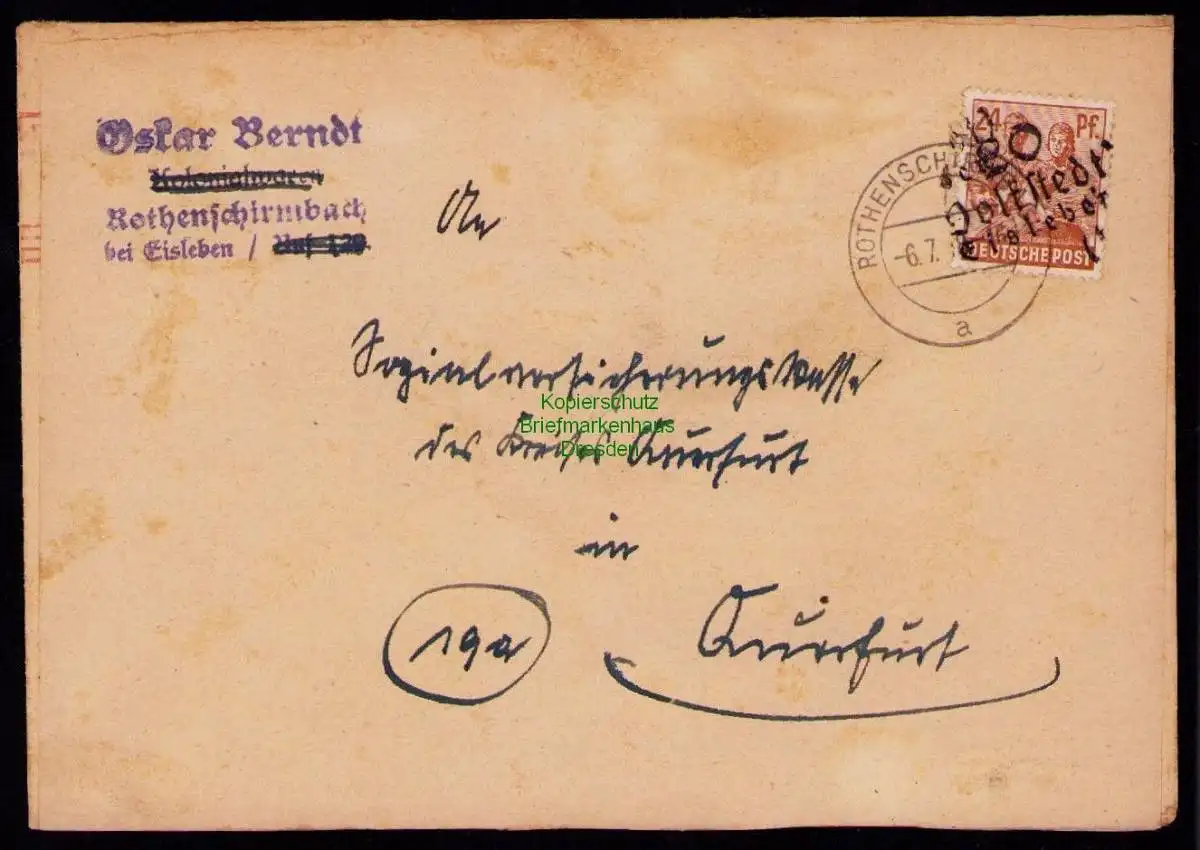 Oskar Berndt
Kolonialwaren
Rothenschirmbach
bei Eisleben / Ruf 420.
24 Pf.
20
Volkstedt
Eisleben
DEUTSCHE POST
ROTHENSCHIRM
-6.7.
a
An
Sozialversicherungskasse
des Kreises Querfurt
in
19a
Querfurt
Kopierschutz
Briefmarkenhaus
Dresden